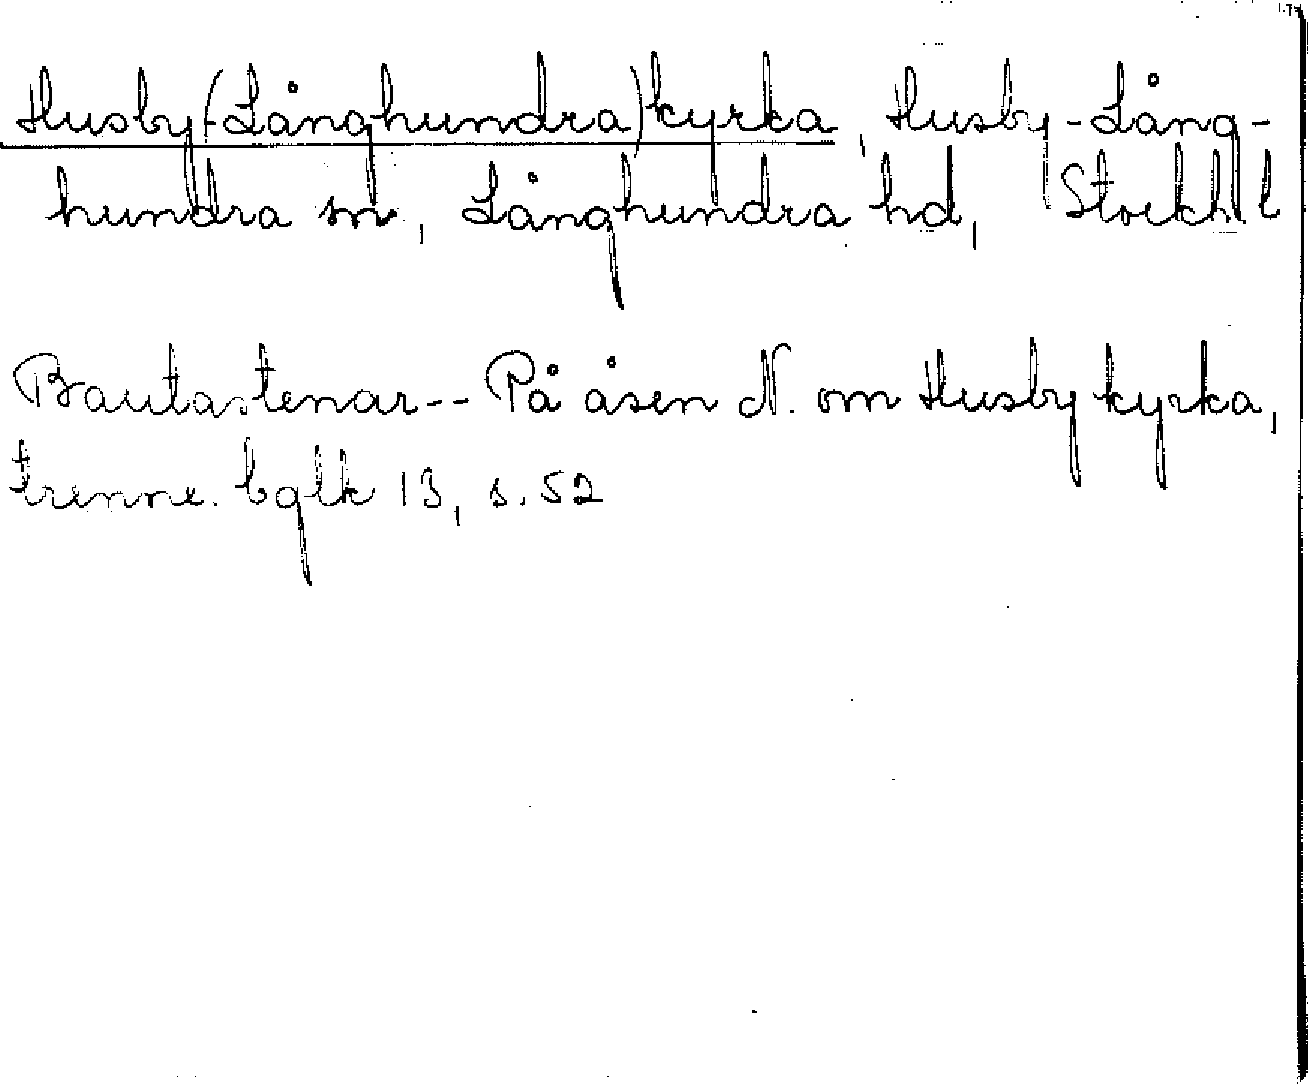 Husby(-Långhundra) kyrka, Husby-Lång-
hundra sn, Långhundra hd, Stockh. l
Bautastenar-- På åsen N. om Husby kyrka,
trenne. bglk 13, s. 52